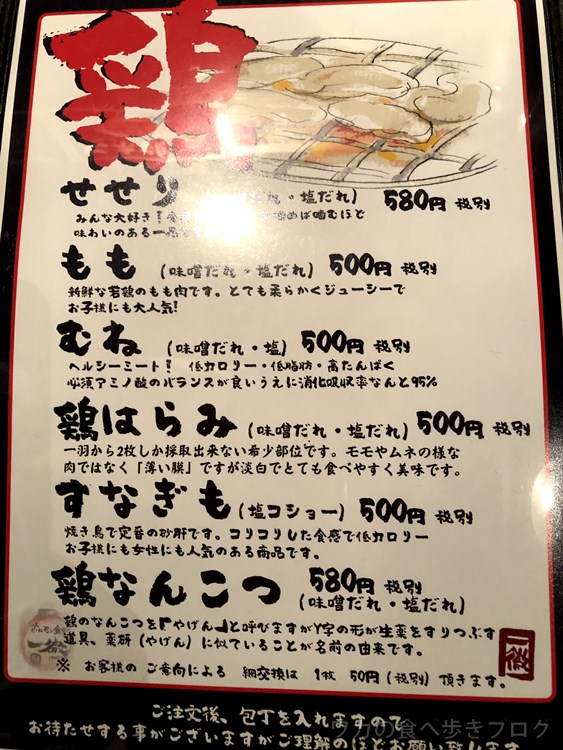 鶏
せせり だれ・塩だれ) 580円 税別
みんな大好き! 噛めば噛むほど
味わいのある一品
もも (味噌だれ・塩だれ) 500円 税別
新鮮な若鶏のもも肉です。とても柔らかくジューシーで
お子様にも大人気!
むね (味噌だれ・塩) 500円 税別
ヘルシーミート! 低カロリー・低脂肪・高たんぱく
必須アミノ酸のバランスが良いうえに消化吸収率なんと95%
鶏はらみ (味噌だれ・塩だれ) 500円 税別
一羽から2枚しか採取出来ない希少部位です。モモやムネの様な
肉ではなく「薄い膜」ですが淡白でとても食べやすく美味です。
すなぎも (塩コショー) 500円 税別
焼き鳥で定番の砂肝です。コリコリした食感で低カロリー
お子様にも女性にも人気のある商品です。
鶏なんこつ 580円 税別
(味噌だれ・塩だれ)
鶏のなんこつを「やげん」と呼びますがY字の形が生薬をすりつぶす
道具、薬研(やげん)に似ていることが名前の由来です。
※ お客様の ご意向による 網交換は 1枚 50円(税別)頂きます。
ご注文後、包丁を入れますので
お待たせする事がございますがご理解のほど
フカの食べ歩きブログ